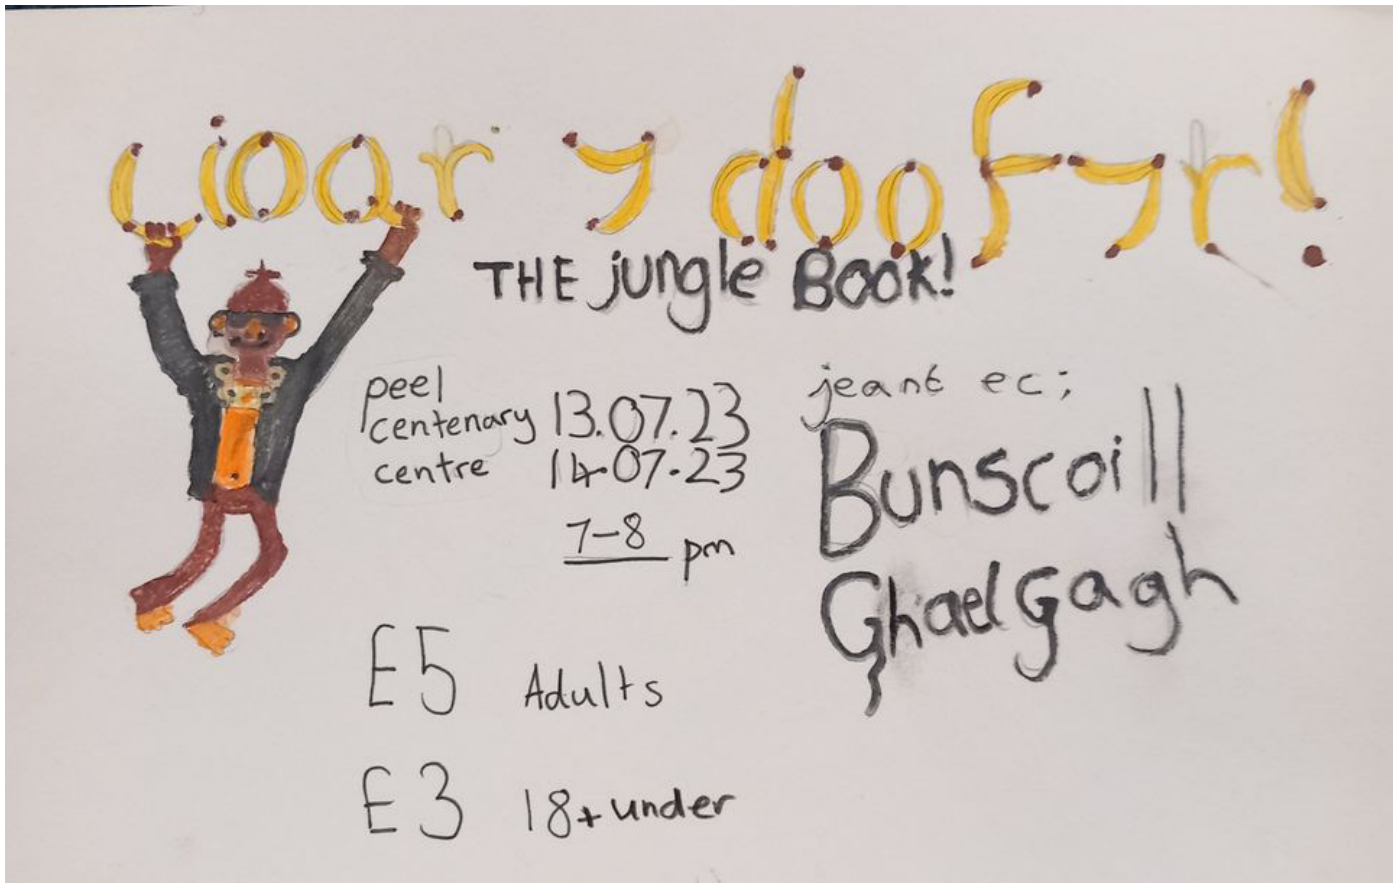 Lioar y doofyr!
THE jungle Book!
peel
centenary
centre
13.07.23
14.07.23
7-8 pm
jeant ec;
Bunscoill
Ghaelgagh
£5 Adults
£3 18+under